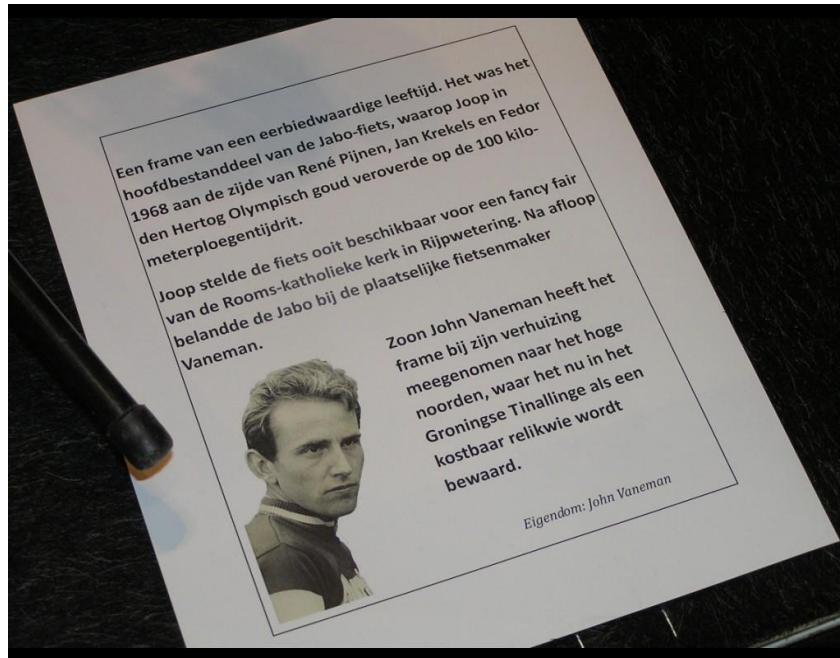 Een frame van een eerbiedwaardige leeftijd. Het was het
hoofdbestanddeel van de Jabo-fiets, waarop Joop in
1968 aan de zijde van René Pijnen, Jan Krekels en Fedor
den Hertog Olympisch goud veroverde op de 100 kilo-
meterploegentijdrit.
Joop stelde de fiets ooit beschikbaar voor een fancy fair
van de Rooms-katholieke kerk in Rijpwetering. Na afloop
belandde de Jabo bij de plaatselijke fietsenmaker
Vaneman.
Zoon John Vaneman heeft het
frame bij zijn verhuizing
meegenomen naar het hoge
noorden, waar het nu in het
Groningse Tinallinge als een
kostbaar relikwie wordt
bewaard.
Eigendom: John Vaneman